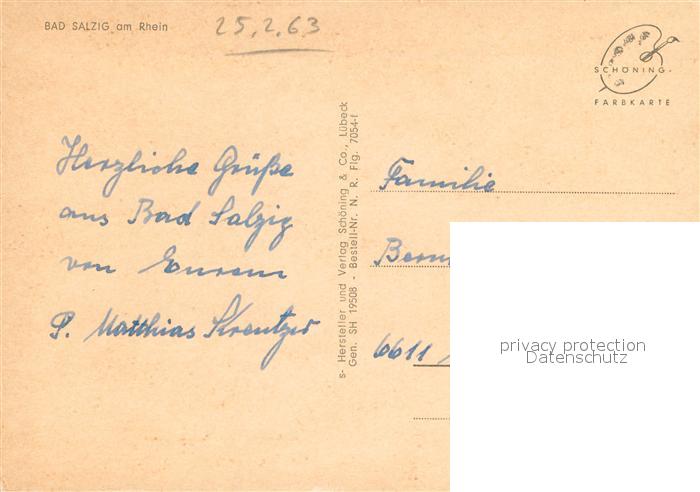 BAD SALZIG am Rhein
25.2.63
SCHÖNING
FARBKARTE
Herzliche Grüße
aus Bad Salzig
von Eurem
P. Matthias Kreutzer
s- Hersteller und Verlag Schöning & Co., Lübeck
Gen. SH 19508 - Bestell-Nr. N. R. Flg. 7054-f
Familie
6611
privacy protection
Datenschutz